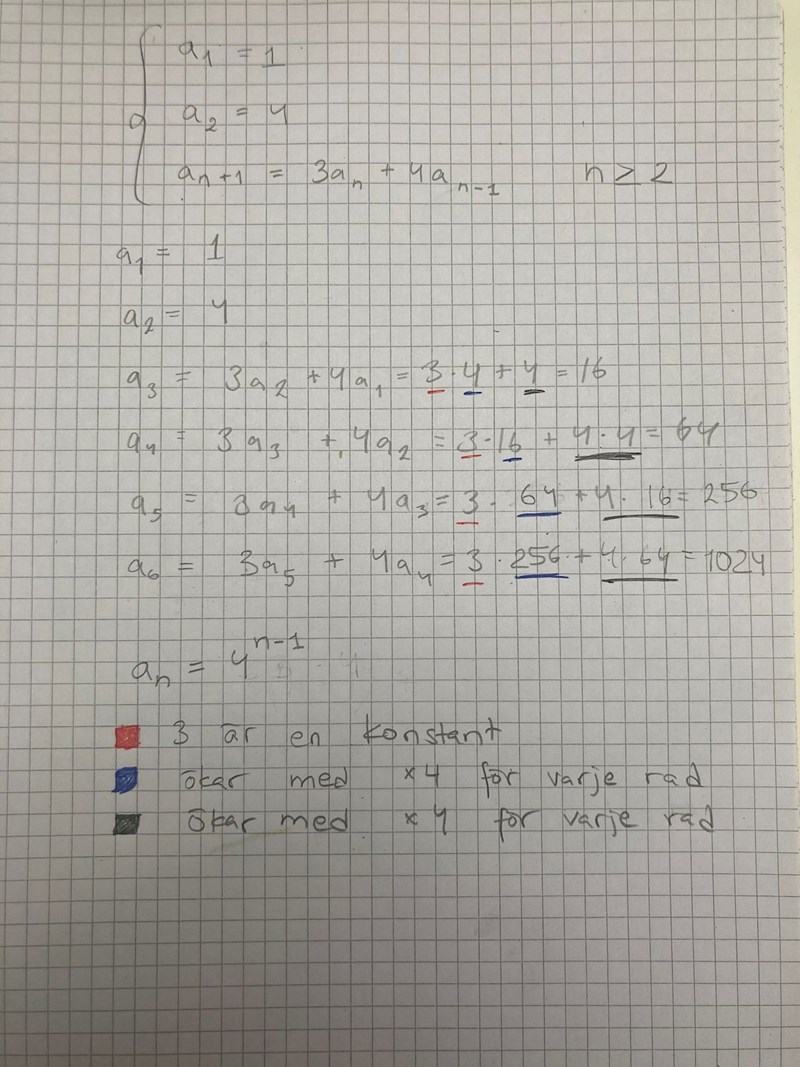 a₁ = 1
a₂ = 4
aₙ₊₁ = 3aₙ + 4aₙ₋₁ n ≥ 2
a₁ = 1
a₂ = 4
a₃ = 3a₂ + 4a₁ = 3·4 + 4 = 16
a₄ = 3a₃ + 4a₂ = 3·16 + 4·4 = 64
a₅ = 3a₄ + 4a₃ = 3·64 + 4·16 = 256
a₆ = 3a₅ + 4a₄ = 3·256 + 4·64 = 1024
aₙ = 4ⁿ⁻¹
3 är en konstant
ökar med ×4 för varje rad
ökar med ×4 för varje rad